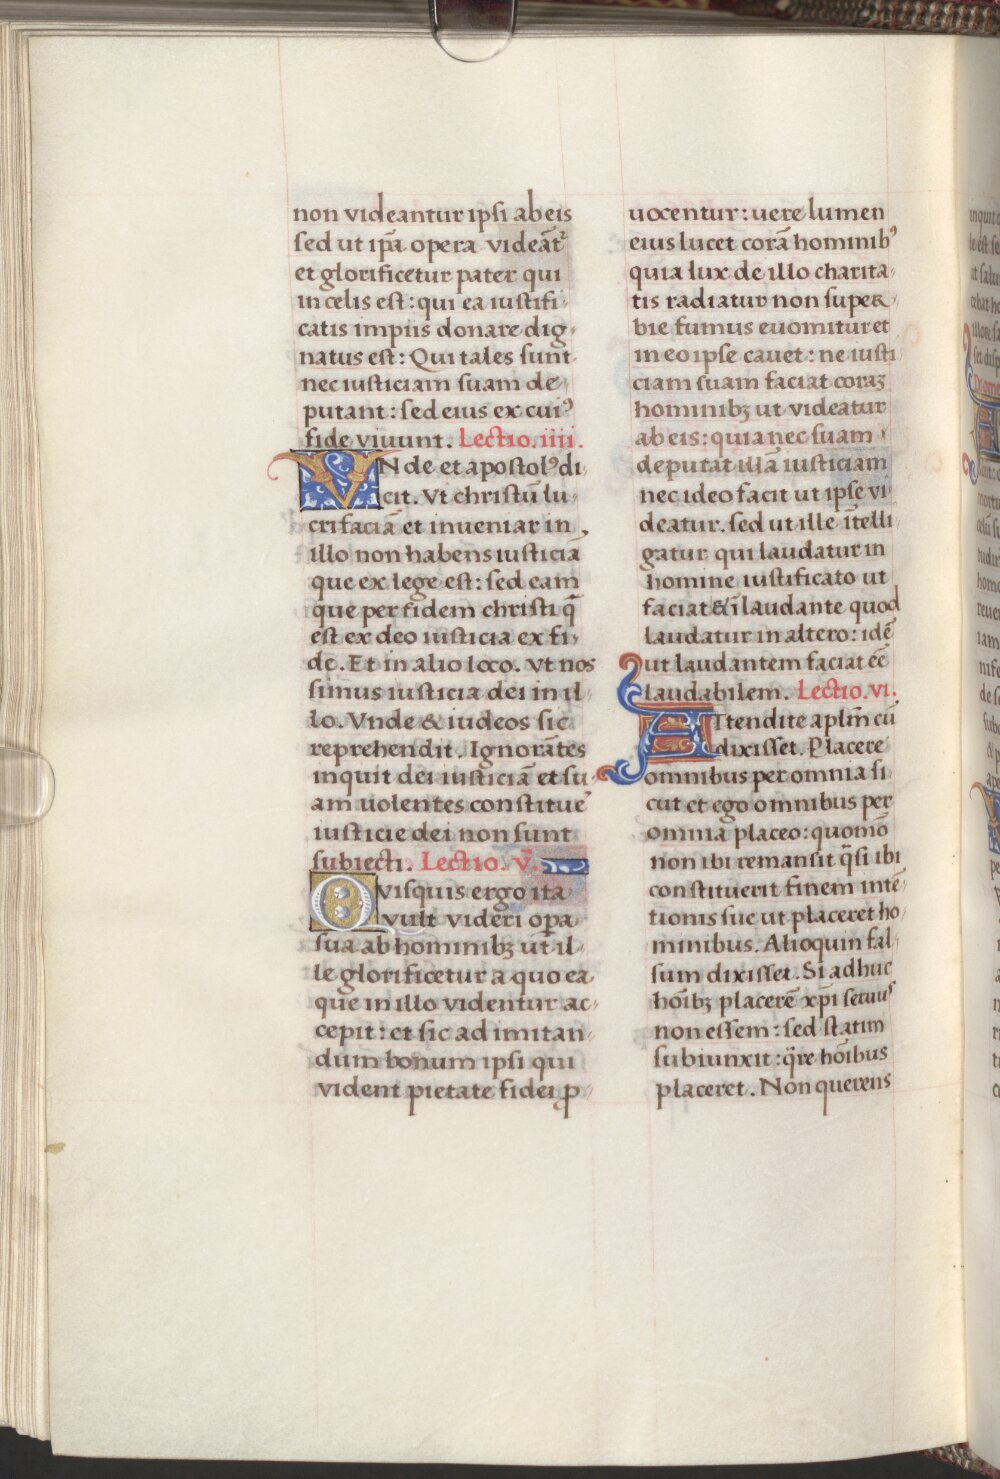 non videantur ipsi ab eis
sed ut ip̄a opera videāt᷑
et glorificetur pater qui
in celis est: qui ea iustifi-
catis impiis donare dig-
natus est: Qui tales sunt
nec iusticiam suam de-
putant: sed eius ex cuiꝰ
fide viuunt. Lectio. iiii.
VN de et apostolꝰ di-
cit. Vt christū lu-
crifaciā et inueniar in
illo non habens iusticiā
que ex lege est: sed eam
que per fidem christi q̄
est ex deo iusticia ex fi-
de. Et in alio loco. Vt nos
simus iusticia dei in il-
lo. Vnde & iudeos sic
reprehendit. Ignorātes
inquit dei iusticiā et su-
am uolentes constitue᷑
iusticie dei non sunt
subiecti. Lectio. v̄.
QVisquis ergo ita
vult videri opa
sua ab hominibꝫ ut il-
le glorificetur a quo ea
que in illo videntur ac-
cepit: et sic ad imitan-
dum bonum ipsi qui
vident pietate fidei ꝓ-
uocentur: uere lumen
eius lucet corā hominibꝰ
quia lux de illo charita-
tis radiatur non super-
bie fumus euomitur et
in eo ipse cauet: ne iusti
ciam suam faciat coraꝫ
hominibꝫ ut videatur
ab eis: quia nec suam
deputat illā iusticiam
nec ideo facit ut ipse vi-
deatur. sed ut ille ītelli-
gatur qui laudatur in
homine iustificato ut
faciat & ī laudante quod
laudatur in altero: idē
ut laudantem faciat eē
laudabilem. Lectio. vi.
ATtendite aplm̄ cū
dixisset. Placere
omnibus per omnia si-
cut et ego omnibus per
omnia placeo: quomō
non ibi remansit q̄si ibi
constituerit finem intē-
tionis sue ut placeret ho-
minibus. Alioquin fal-
sum dixisset. Si adhuc
hoībꝫ placerē xp̄i seruus
non essem: sed statim
subiunxit: q̄re hoībus
placeret. Non querens